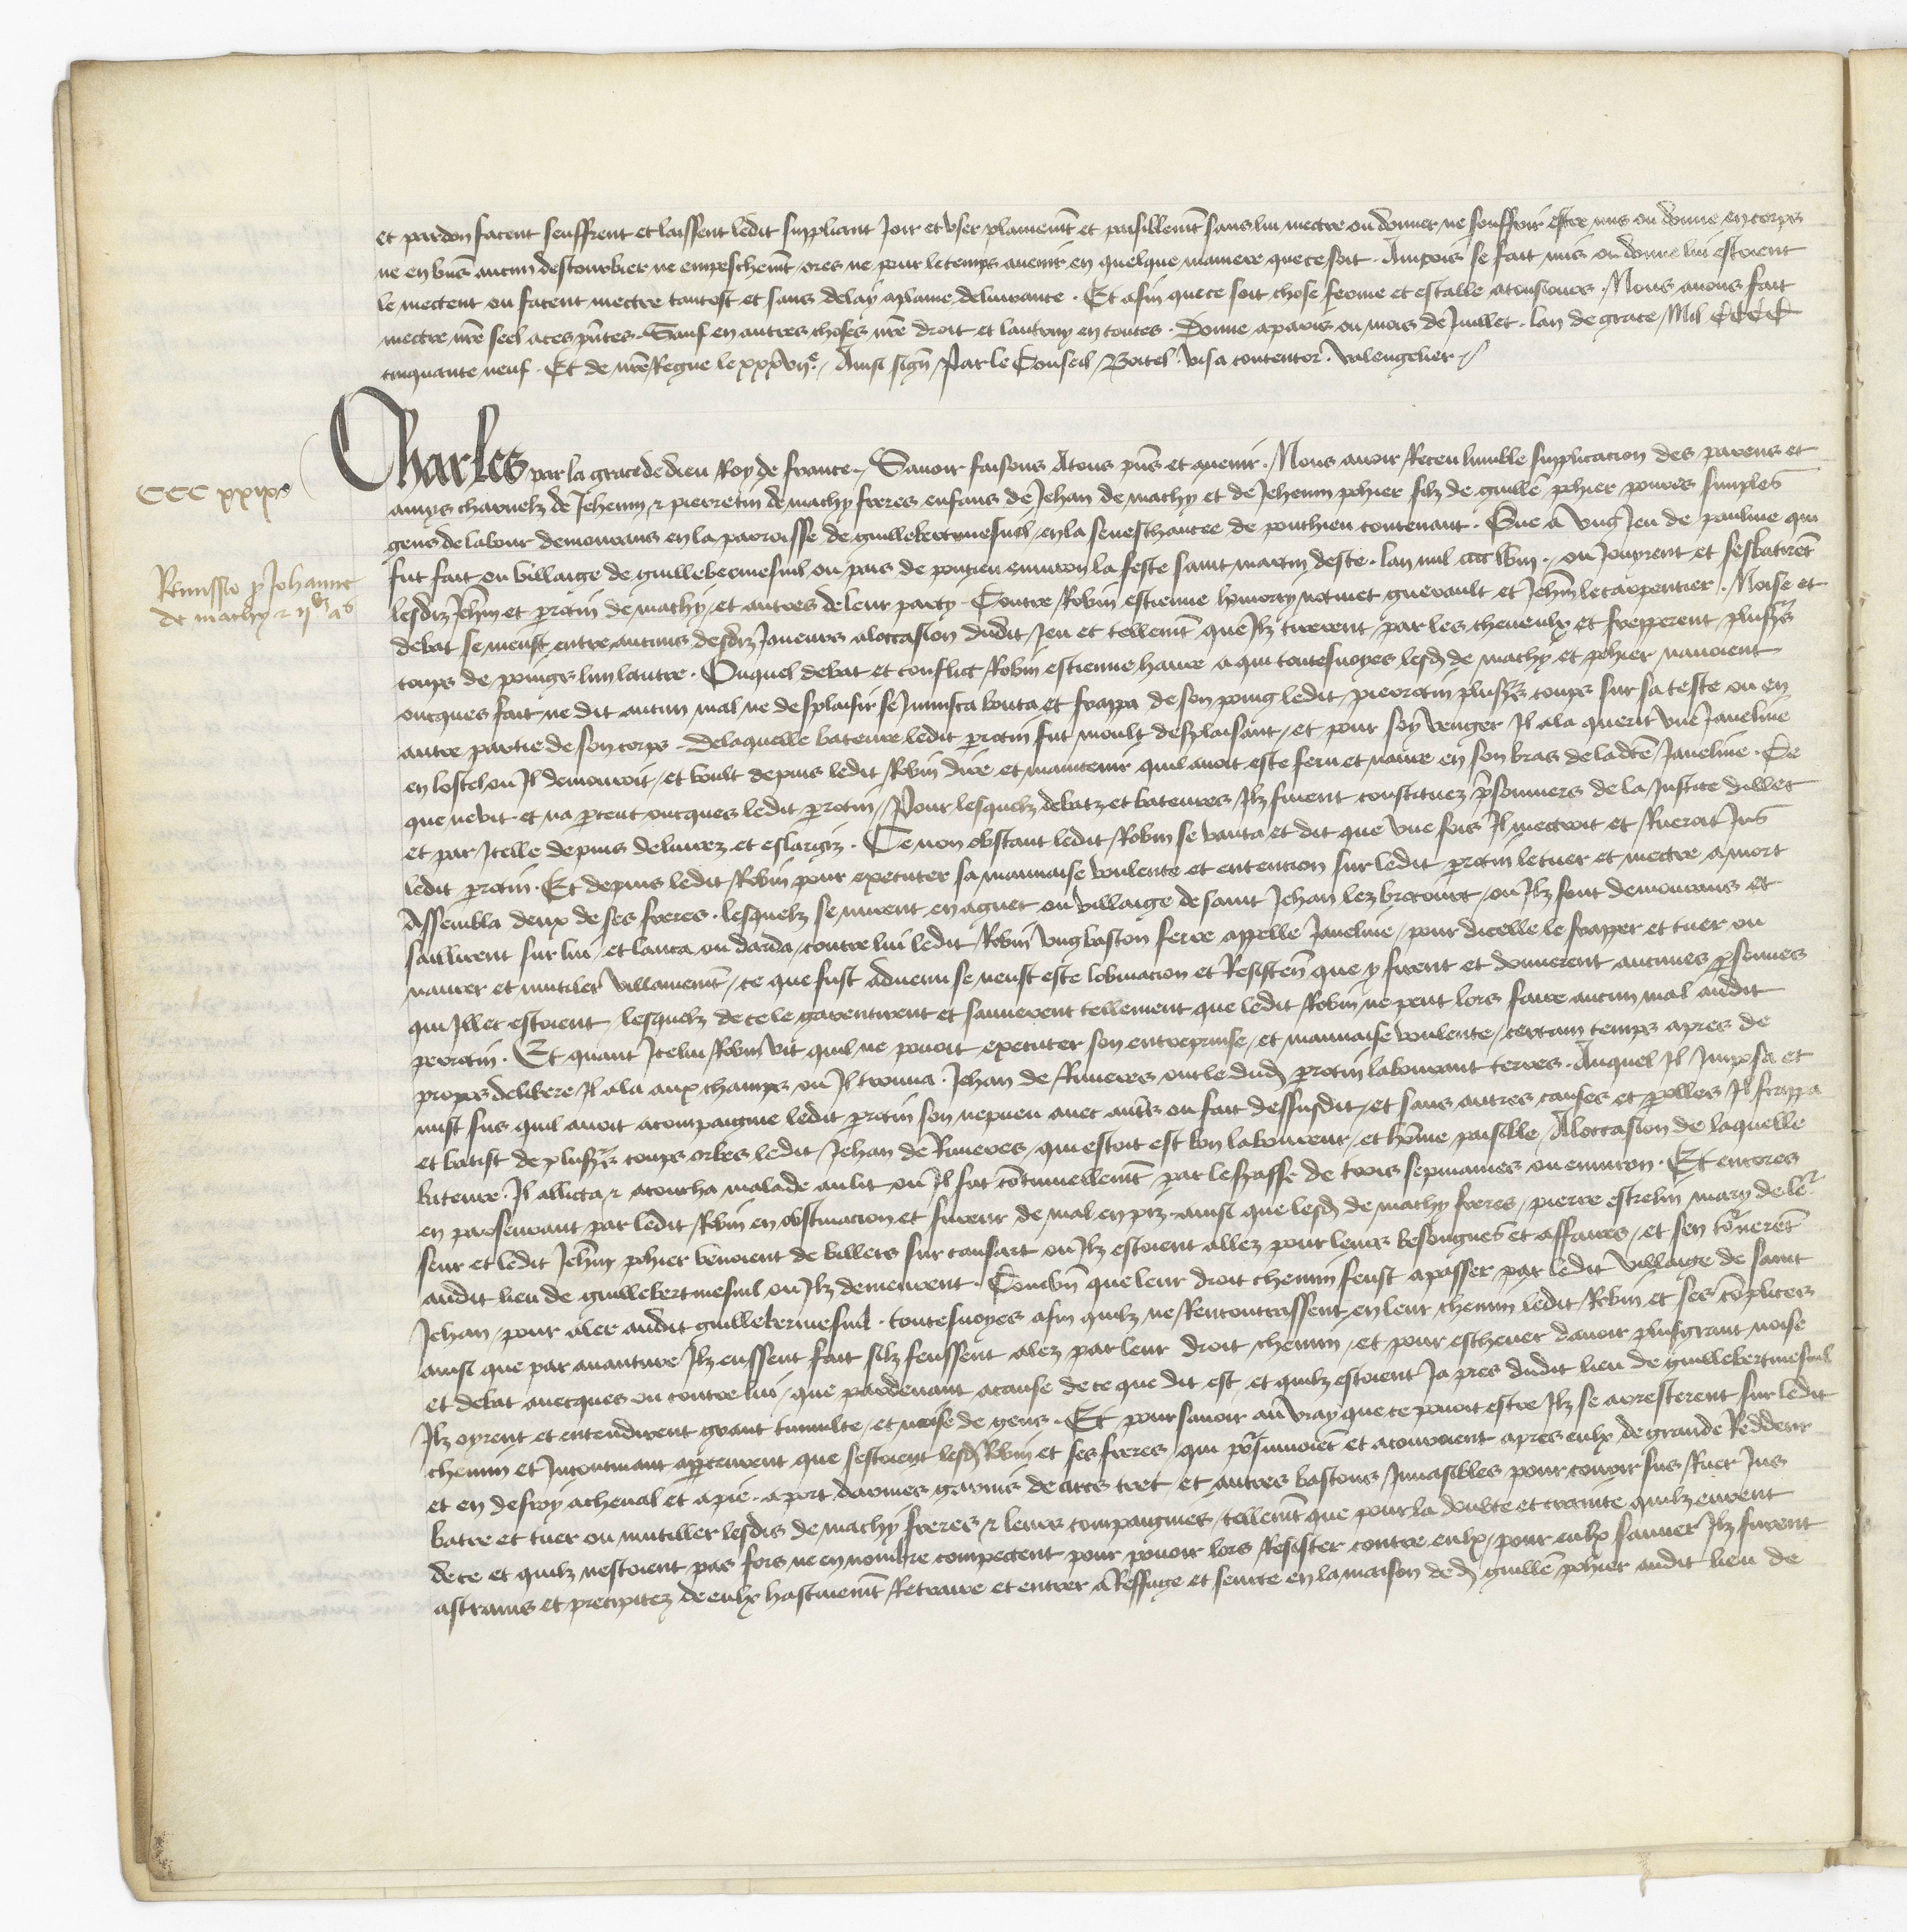 et pardon facent seuffrent et laissent ledit suppliant Joir et user plainemt et paisiblemt sans lui mectre ou donner ne souffrir estre mis ou donne en corps
ne en biens aucun destourbier ne empeschemt ores ne pour le temps avenir en quelque maniere que ce soit. Aincois se fait mis ou donne lui estoient
le mectent ou facent mectre tantost et sans delay a plaine delivrance. Et afin que ce soit chose ferme et estable a tousiours. Nous avons fait
mectre nre seel a ces pntes. Sauf en autres choses nre droit et lautruy en toutes. Donne a paris ou mois de Juillet. lan de grace Mil CCCC
cinquante neuf. Et de nre Regne le xxxvije. Ainsi signe Par le Conseil Boitel. Visa contentor. Valengelier
Charles par la grace de dieu Roy de france. Savoir faisons Atous pns et avenir. Nous avoir Receu lumble supplicacion des parens et
CCC xxixe
amys charnelz de Jehenin & pierretin de machy freres enfans de Jehan de machy et de Jehenin pohier filz de guille pohier povres simples
gens de labour demourans en la parroisse de guillebertmesnil en la seneschaucee de ponthieu contenant. Que a ung Jeu de paulme qui
fut fait ou villaige de guillebermesnil ou pais de pontieu environ la feste saint martin deste. lan mil cccc lviij. ou Jouyrent et sesbatirent
Remissio p Johanne
de machy & ijbz as
lesdiz Jehin et protin de machy et autres de leur party Contre Robin estienne hemery notinet guerault et Jehin le carpentier. Noise et
debat se meust entre aucuns desdiz Joueurs a loccasion dudit Jeu et tellemt que Ilz tirerent par les cheveulx et frapperent plusrs
coups de poings lun lautre. Ouquel debat et conflict Robin estienne havre a qui toutesvoyes lesd de machy et pohier navoient
oncques fait ne dit aucun mal ne desplaisir se Immisca bouta et frappa de son poing ledit pierrotin plusrs coups sur sa teste ou en
autre partie de son corps. De laquelle bateure ledit protin fut moult desplaisant et pour soy venger Il ala querir une Javeline
en lostel ou Il demouroit et voult depuis ledit Robin dire et maintenir quil avoit este feru et navre en son bras de ladte Javeline. De
que ne vit et na pceut oncques ledit protin Pour lesquelz debatz et bateures Ilz furent constituez prisonniers de la Justice dillec
et par Icelle depuis delivrez et eslargiz. Ce non obstant ledit Robin se vanta et dit que une fois Il mectroit et Rueroit Jus
ledit protin. Et depuis ledit Robin pour executer sa mauvaise voulente et entencion sur ledit protin le tuer et mectre a mort
Assembla deux de ses freres. lesquelz se mirent en aguet ou villaige de saint Jehan lez brocourt ou Ilz sont demourans et
saillirent sur lui et lanca ou darda contre lui ledit Robin ung baston ferre appelle Javeline pour dicelle le frapper et tuer ou
navrer et mutiler villainemt ce que fust advenu se neust este lobviacion et Resisten que y firent et donnerent aucunes psonnes
qui Illec estoient lesquelz de ce le garentirent et sauverent tellement que ledit Robin ne peut lors faire aucun mal audit
perrotin. Et quant Icelui Robin vit quil ne povoit executer son entreprinse et mauvaise voulente certain temps apres de
propos delibere Il ala aux champs ou Il trouva Jehan de Riuieres oncle dud protin labourant terres. Auquel Il Imposa et
mist sus quil avoit acompaigne ledit protin son nepveu avec autrs ou fait dessusdit et sans autres causes et parolles Il frappa
et batist de plusrs coups orbes ledit Jehan de Riuieres qui estoit est bon laboureur et homme paisible. A loccasion de laquelle
bateure Il allicta & acoucha malade au lit ou Il fut continuellemt par lespasse de trois sepmaines ou environ. Et encores
en perseverant par ledit Robin en obstinacion et fureur de mal en piz ainsi que lesd de machy freres pierre estrelin mary de le
seur et ledit Jehin pohier venoient de villers sur cansart ou Ilz estoient allez pour leurs besongnes et affaires et sen tornerent
audit lieu de guillebertmesnil ou Ilz demeurent. Combn que leur droit chemin feust a passer par ledit villaige de saint
Jehan pour aler audit guillebermesnil. toutesvoyes afin quilz ne Rencontrassent en leur chemin ledit Robin et ses complices
ainsi que par avanture Ilz eussent fait silz feussent alez par leur droit chemin et pour eschever davoir plusgrant noise
et debat avecques ou contre lui que pardevant a cause de ce que dit est et quilz estoient Ja pres dudit lieu de guillebertmesnil
Ilz oyrent et entendirent grant tumulte et noise de gens. Et pour savoir au vray que ce povoit estre Ilz se arresterent sur ledit
chemin et Incontinant apperceurent que sestoient lesd Robin et ses freres qui porsuivoient et acouroient apres eulx de grande Reddeur
et en desroy a cheval et a pie a port darmes garnis de arcs tret et autres bastons Invasibles pour courir sus Ruer Jus
batre et tuer ou mutiller lesdis de machy freres & leurs compaignies tellemt que pour la doubte et crainte quilz eurent
de ce et quilz nestoient pas fors ne en nombre competent pour povoir lors Resister contre eulx pour eulx sauver Ilz furent
astrains et precipitez de eulx hastivemt Retraire et entrer a Reffuge et seurte en la maison dud guille pohier audit lieu de